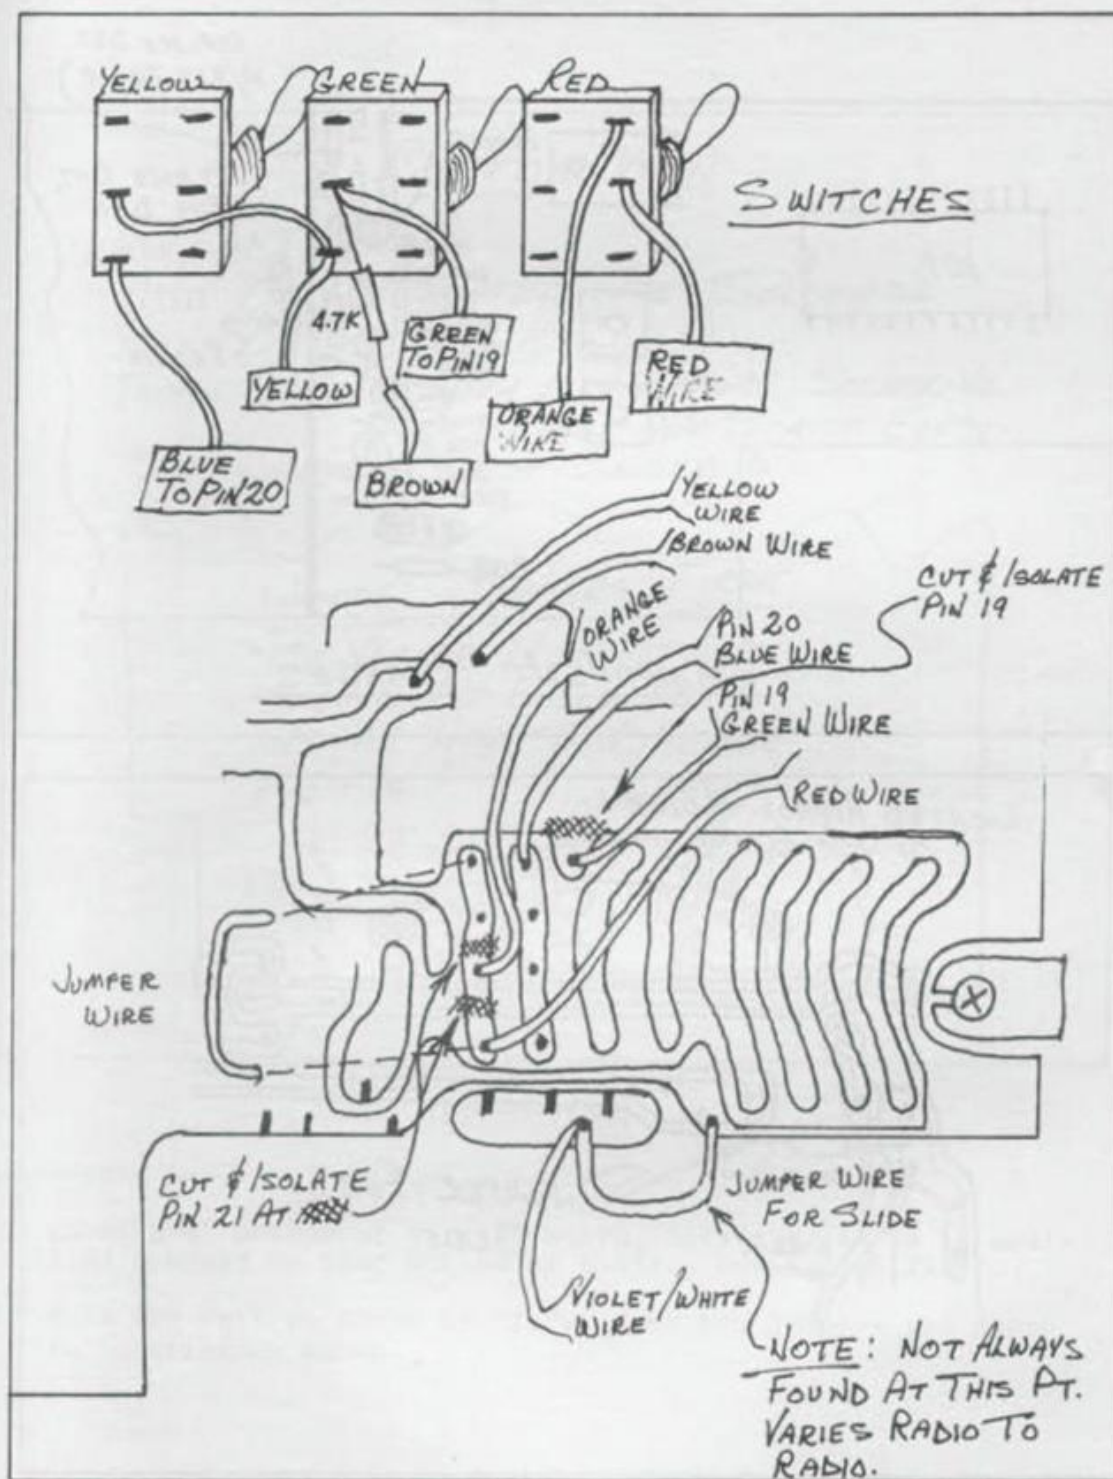 YELLOW
GREEN
RED
SWITCHES
4.7K
GREEN
TO PIN 19
RED
WIRE
YELLOW
ORANGE
WIRE
BLUE
TO PIN 20
BROWN
YELLOW
WIRE
BROWN WIRE
CUT & ISOLATE
PIN 19
ORANGE
WIRE
PIN 20
BLUE WIRE
PIN 19
GREEN WIRE
RED WIRE
JUMPER
WIRE
CUT & ISOLATE
PIN 21 AT
JUMPER WIRE
FOR SLIDE
VIOLET/WHITE
WIRE
NOTE: NOT ALWAYS
FOUND AT THIS PT.
VARIES RADIO TO
RADIO.